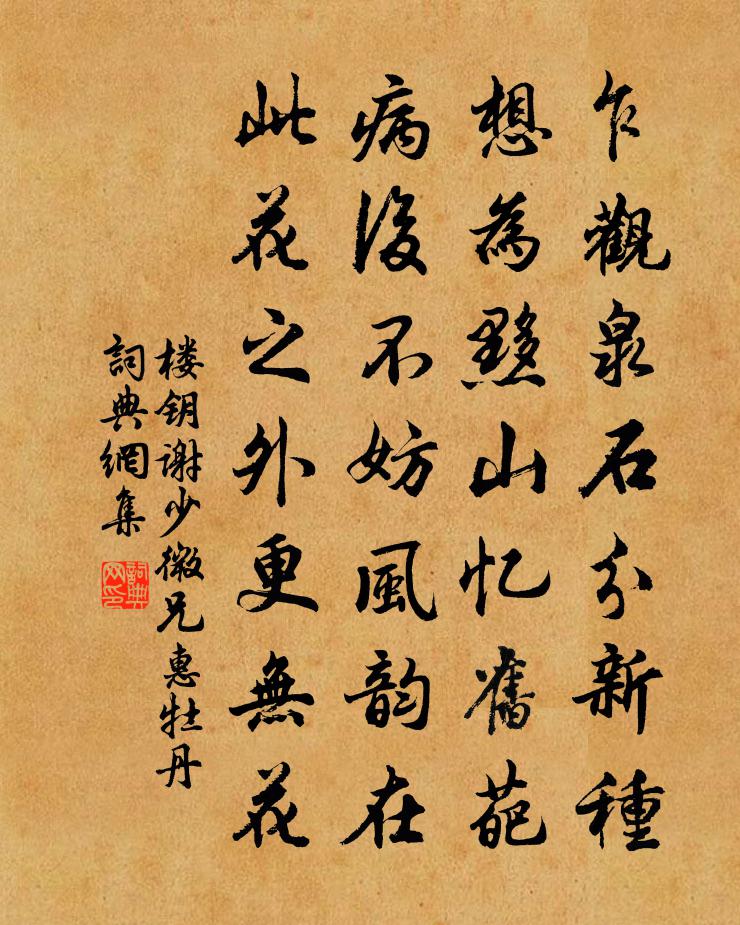 乍觀泉石分新種
想為黟山忆舊葩
病後不妨風韵在
此花之外更無花
楼钥谢少微兄惠牡丹
詞典網集
詞典网印